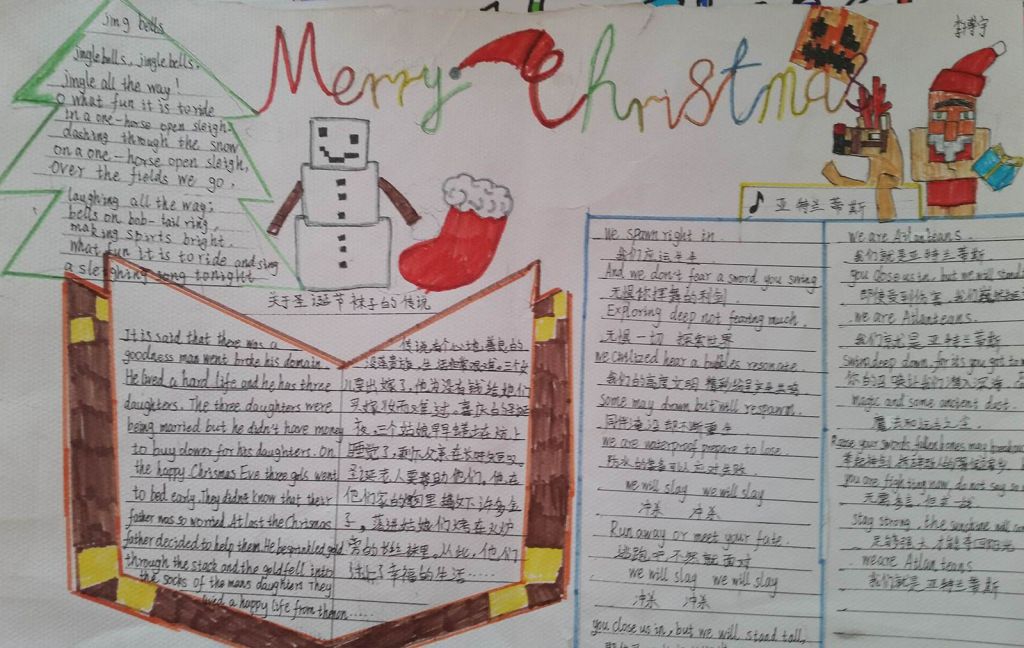 Merry Christmas
jing bells
jingle bells, jingle bells,
jingle all the way!
O what fun it is to ride
in a one-horse open sleigh,
dashing through the snow
on a one-horse open sleigh,
over the fields we go,
laughing all the way;
bells on bob-tail ring,
making spirts bright.
what fun it is to ride and sing
a sleighing song tonight
关于圣诞节袜子的传说
It is said that there was a
goodness man went broke his domain.
He lived a hard life and he has three
daughters. The three daughters were
being married but he didn't have money
to buy dower for his daughters. On
the happy Chrismas Eve three girls went
to bed early. They didn't know that their
father was so worried. At last the Chrismas
father decided to help them. He besprinkled gold
through the stack and the gold fell into
the socks of the mans daughters They
lived a happy life from then on.....
传说有个心地善良的
没落贵族,生活非常艰难。三个女
儿要出嫁了,他
夜,三个姑娘早早
睡觉了,
圣诞老人要帮助他们。他在
他们家的烟囱里撒下许多金
子,落进姑娘们
旁的
过上了幸福的生活……
♪ 亚特兰蒂斯
We spawn right in
我们应运
And we don't fear a sword you swing
无惧你挥舞的利剑
Exploring deep not fearing much,
无惧一切 探索世界
we civilized hear a bubbles resonate.
我们的高度文明
Some may drown but will respawn.
同伴淹没却不断重生
we are waterproof prepare to lose
防水的装备可以应对失败
we will slay we will slay
冲杀 冲杀
Run away or meet your fate.
逃跑吧 不然就面对
we will slay we will slay
冲杀 冲杀
you close us in, but we will stand tall,
we are Atlanteans.
我们就是亚特兰蒂斯
you close us in, but we will stand
即使受到伤害,我们
we are Atlanteans.
我们就是亚特兰蒂斯
Swim deep down, for it's you got to
你的召唤让我们潜入深海
magic and some ancient dust.
魔法和远古之尘
Raise your swords fallen homes may
you are fighting now, do not say
stay strong, the sunshine will
足够强大 才能
we are Atlanteans
我们就是亚特兰蒂斯